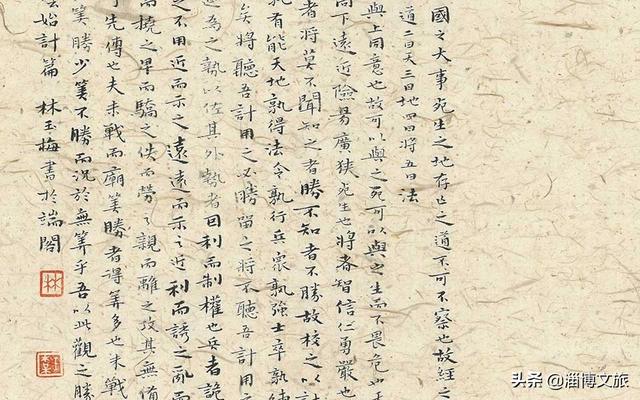 國之大事死生之地存亡之道不可不察也故經之
道二曰天三曰地四曰將五曰法
與上同意也故可以與之死可以與之生而不畏危也
高下遠近險易廣狹死生也將者智信仁勇嚴也
者將莫不聞知之者勝不知者不勝故校之以計
孰有能天地孰得法令孰行兵眾孰強士卒孰練
矣將聽吾計用之必勝留之將不聽吾計用
為之執以佐其外勢者因利而制權也兵者詭
之不用近而示之遠遠而示之近利而誘之亂而
而撓之卑而驕之佚而勞之親而離之攻其無備
先傳也夫未戰而廟筭勝者得筭多也未戰
筭勝少筭不勝而況於無筭乎吾以此觀之勝
始計篇 林玉梅書於端閣
林
头条 @淄博文旅